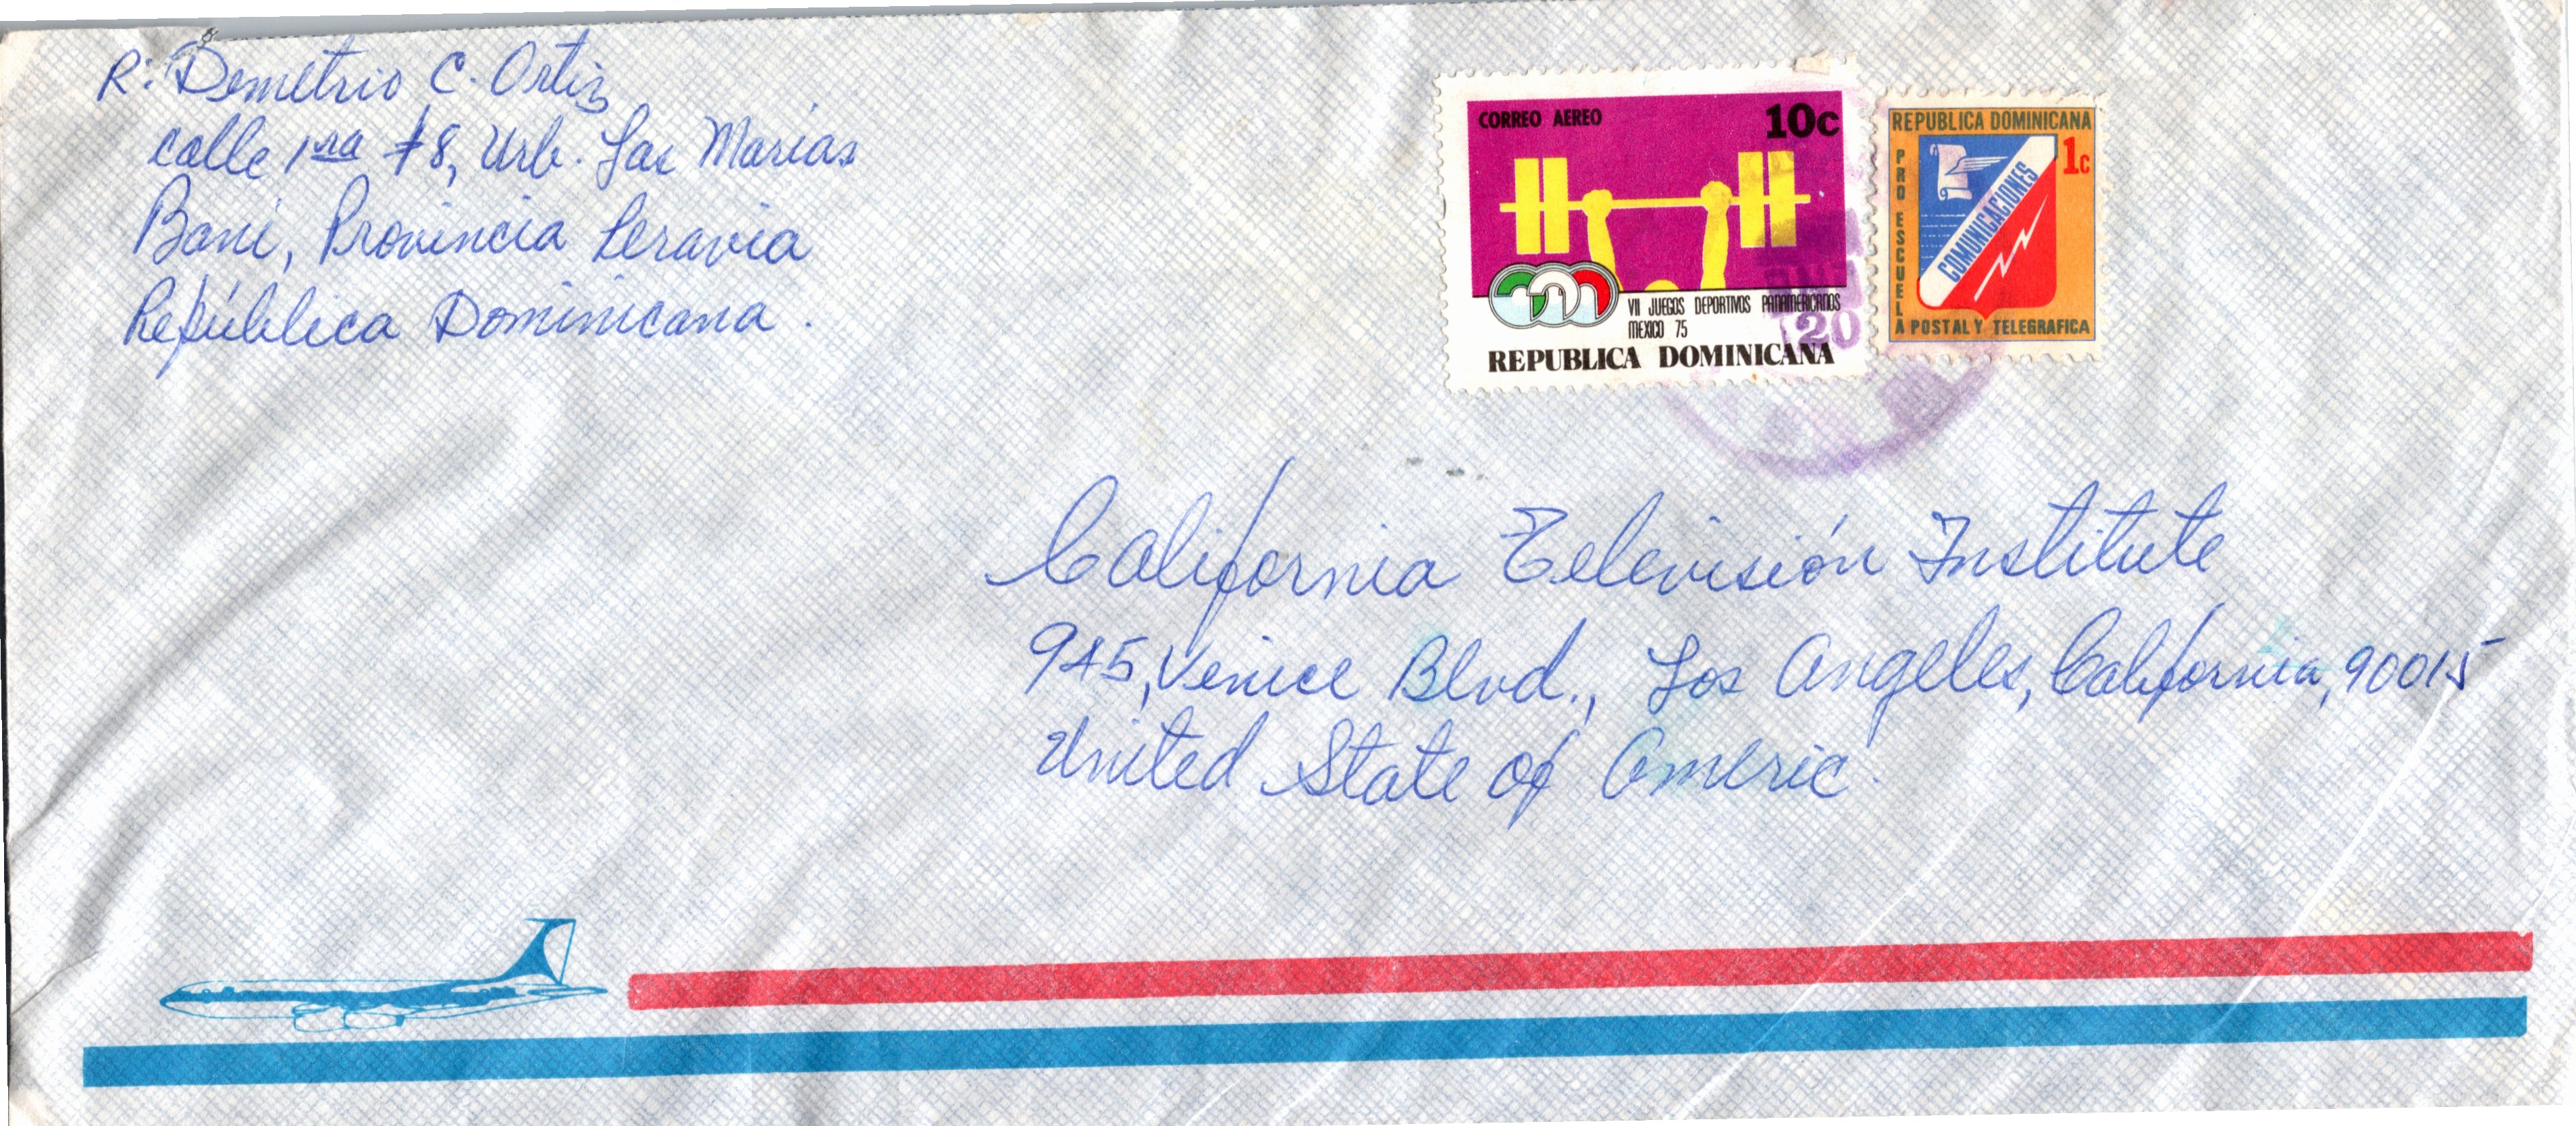 R: Demetrio C. Ortiz
calle 1ra #8, Urb. Las Marias
Bani, Provincia Peravia
República Dominicana.
CORREO AEREO 10c
VII JUEGOS DEPORTIVOS PANAMERICANOS
MEXICO 75
REPUBLICA DOMINICANA
20
REPUBLICA DOMINICANA
1c
PRO ESCUELA
COMUNICACIONES
POSTAL Y TELEGRAFICA
California Televisión Institute
945, Venice Blvd., Los Angeles, California, 90015
United State of Americ.